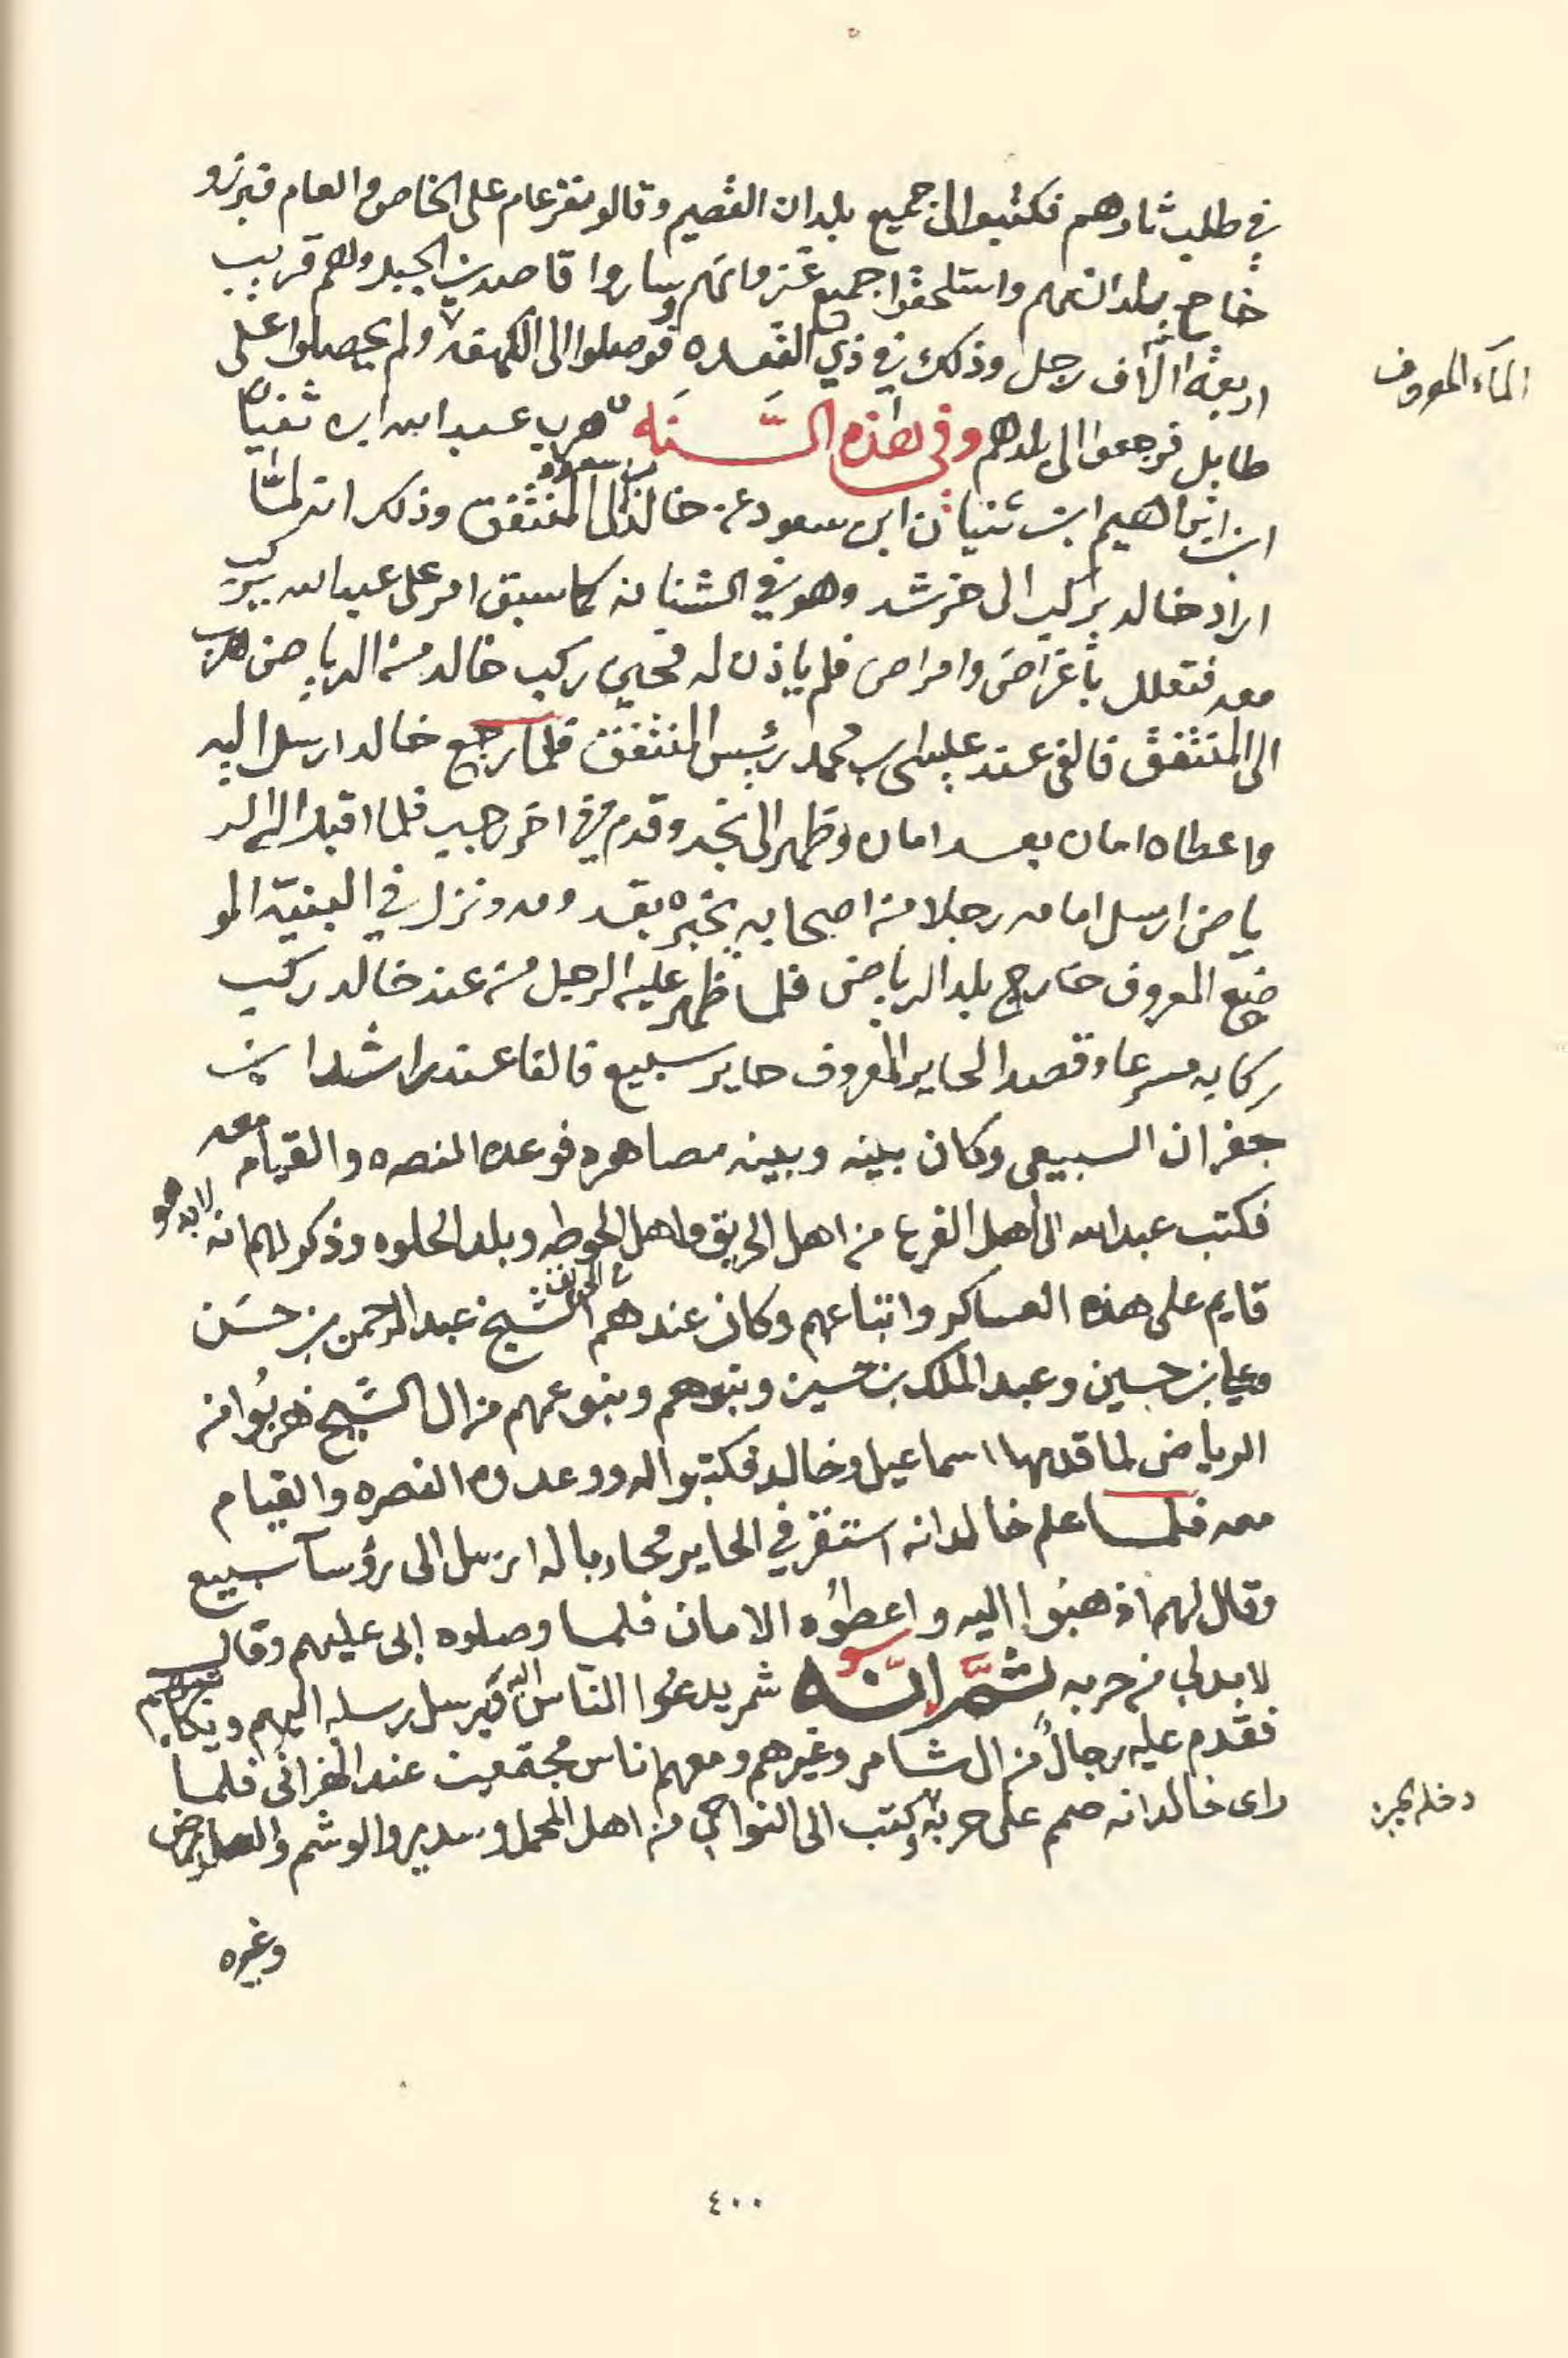 في طلب ثارهم فكتبوا الى جميع بلدان القصيم وقالو نفر عام على الخاص والعام فبرزو
خارج بلدانهم واستلحقوا جميع غزوانهم وساروا قاصدين الجبل وهم قريب
اربعة الاف رجل وذلك في ذي القعده فوصلوا الى الكهفه ولم يحصلوا على
الماء المعروف
طايل فرجعوا الى بلدهم وفي هذه السنه هرب عبد الله ابن ثنيان
ابن ابراهيم ابن ثنيان ابن سعود عن خالد بن سعود الى المنتفق وذلك انه لما
اراد خالد يركب الى خرشد وهو في الشنانه كما سبق امر على عبد الله يركب
معه فتعلل باغراض وامراض فلم ياذن له فحين ركب خالد من الرياض هرب
الى المنتفق فالفى عند عيسى بن محمد رئيس المنتفق فلما رجع خالد ارسل اليه
واعطاه امان بعد امان وظهر الى نجد وقدم في اخر رجب فلما اقبل الى الر
ياض ارسل امامه رجلا من اصحابه يخبره بقدومه ونزل في البنيه المو
ضع المعروف خارج بلد الرياض فلما ظهر عليه الرجل من عند خالد ركب
ركابه مسرعا وقصد الحاير المعروف حاير سبيع فالفا عند راشد ابن
جفران السبيعي وكان بينه وبينه مصاهره فوعده النصره والقيام معه
فكتب عبد الله الى اهل الفرع من اهل الحريق واهل الحوطه وبلد الحلوه وذكر لهم انه لابد هو
قايم على هذه العساكر واتباعهم وكان عندهم الشيخ عبد الرحمن بن حسن
وعلي بن حسين وعبد الملك بن حسين وبنوهم وبنو عمهم من ال الشيخ هربوا من
الرياض لما قدمها اسماعيل وخالد فكتبوا له ووعدوه النصره والقيام
معه فلما علم خالد انه استقر في الحاير محاربا له ارسل الى رؤسآ سبيع
وقال لهم اذهبوا اليه واعطوه الامان فلما وصلوه ابى عليهم وقال
لا بد لي من حربه ثم انه شمر يدعوا الناس اليه ويرسل رسله اليهم ويكاتبهم
فقدم عليه رجال من ال شامر وغيرهم ومعهم اناس مجتمعين عند الهزاني فلما
راى خالد انه صمم على حربه كتب الى النواحي من اهل المحمل وسدير والوشم والعارض
دخله الجبن
وغيره
٤٠٠